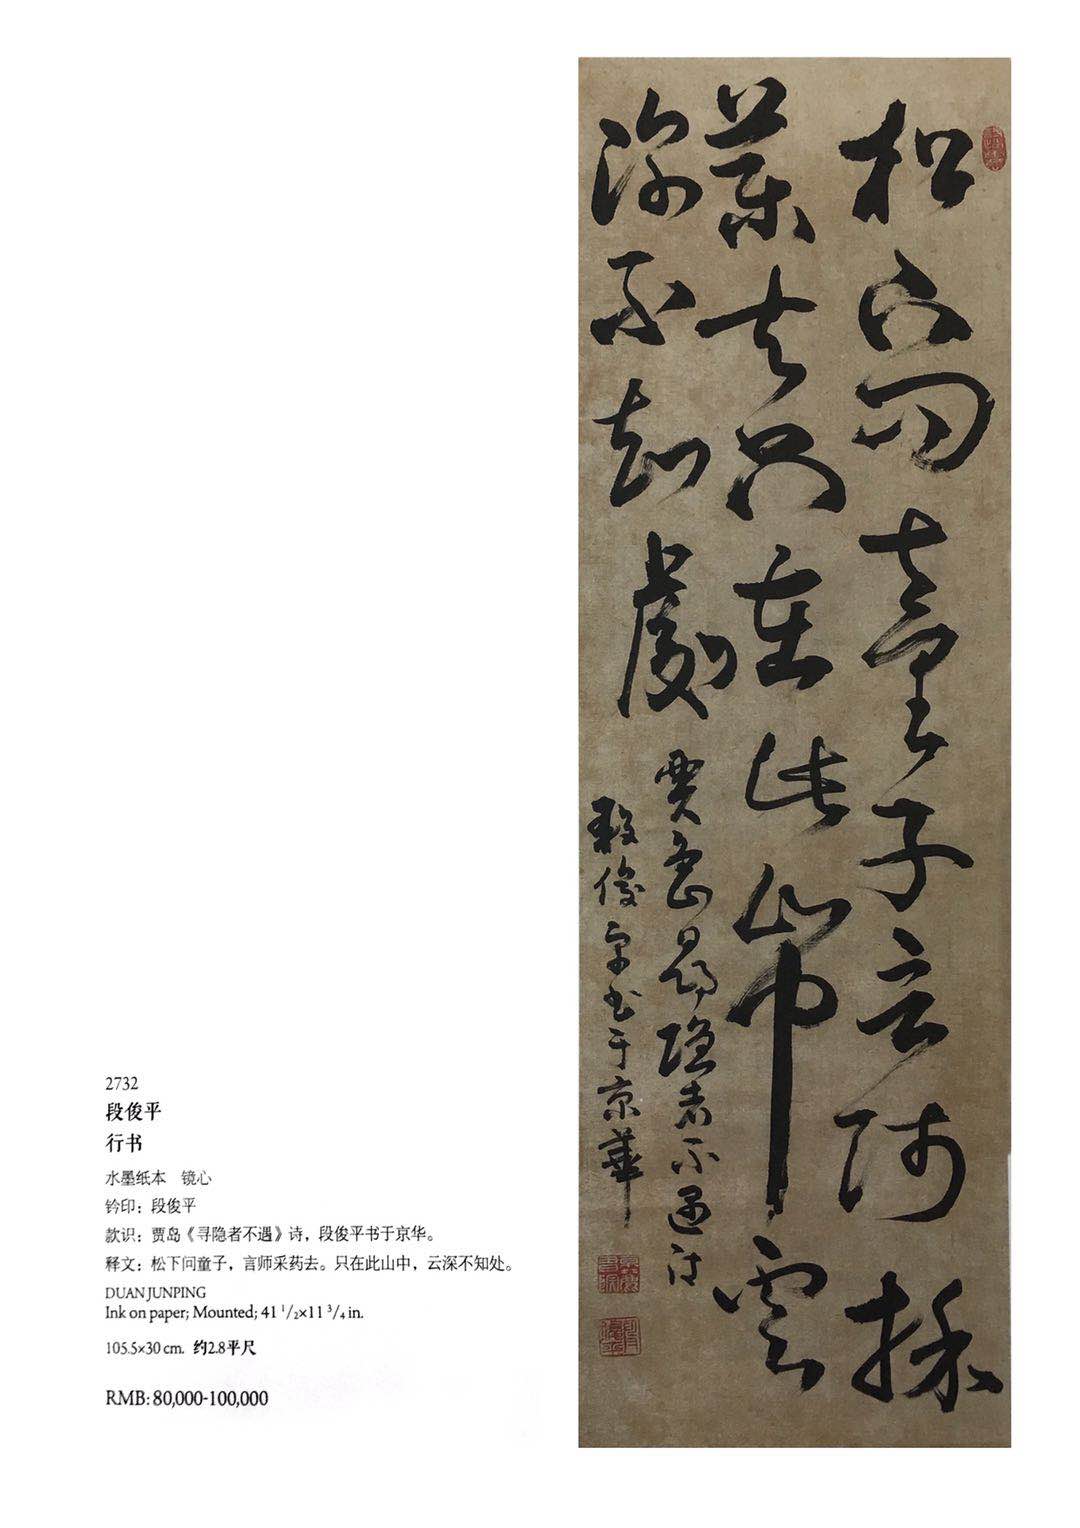 2732
段俊平
行书
水墨纸本 镜心
钤印：段俊平
款识：贾岛《寻隐者不遇》诗，段俊平书于京华。
释文：松下问童子，言师采药去。只在此山中，云深不知处。
DUAN JUNPING
Ink on paper; Mounted; 41 1/2×11 3/4 in.
105.5×30 cm. 约2.8平尺
RMB: 80,000-100,000
松下問童子言師採
藥去只在此山中雲
深不知處
賈島尋隱者不遇詩
段俊平书于京華